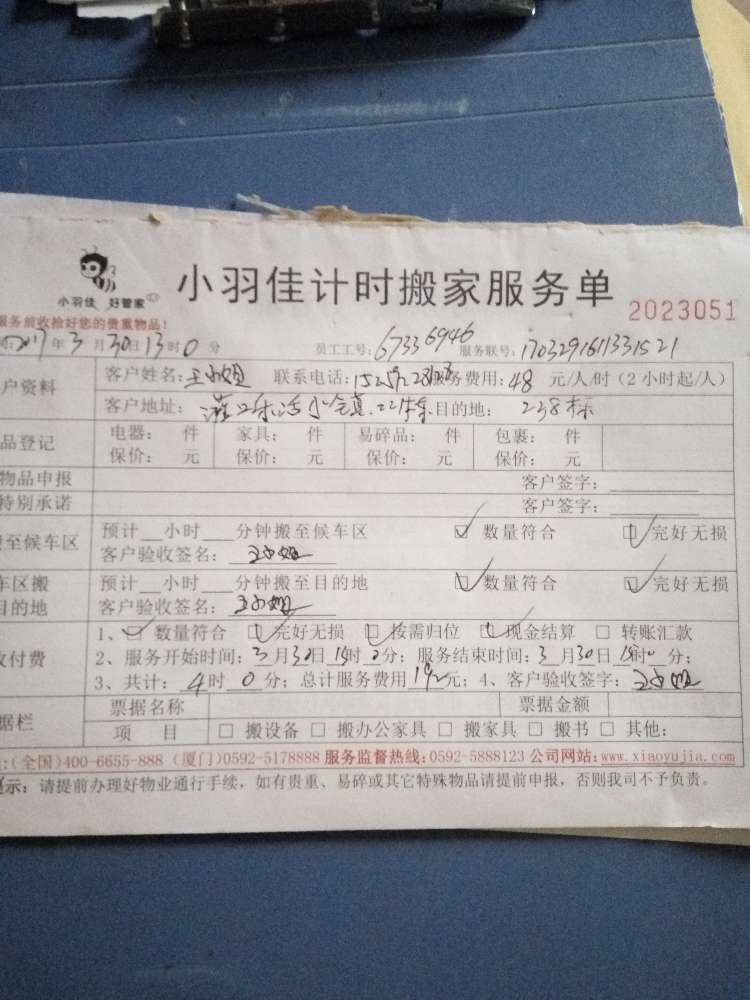 小羽佳 好管家
小羽佳计时搬家服务单
2023051
服务前收拾好您的贵重物品!
2017年3月30日13时0分 员工工号:67336946 服务联号:1703291611331521
户资料 客户姓名:王小姐 联系电话: 服务费用:48元/人/时(2小时起/人)
客户地址: 目的地:238栋
品登记 电器: 件 家具: 件 易碎品: 件 包裹: 件
保价: 元 保价: 元 保价: 元 保价: 元
物品申报 客户签字:
特别承诺 客户签字:
至候车区 预计 小时 分钟搬至候车区 数量符合 完好无损
客户验收签名:王小姐
车区搬 预计 小时 分钟搬至目的地 数量符合 完好无损
目的地 客户验收签名:王小姐
1、数量符合 完好无损 按需归位 现金结算 转账汇款
收付费 2、服务开始时间:3月30日 时0分; 服务结束时间:3月30日 时0分;
3、共计:4时0分;总计服务费用192元;4、客户验收签字:王小姐
据栏 票据名称 票据金额
项 目 搬设备 搬办公家具 搬家具 搬书 其他:
:(全国)400-6655-888 (厦门)0592-5178888 服务监督热线:0592-5888123 公司网站:www.xiaoyujia.com
示:请提前办理好物业通行手续,如有贵重、易碎或其它特殊物品请提前申报,否则我司不予负责。